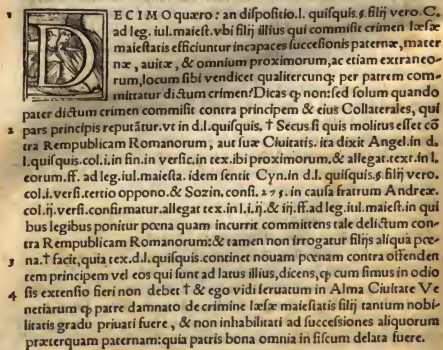 1 DECIMO quæro: an dispositio.l. quisquis.§.filij vero.C.
ad leg. iul. maiest. vbi filij illius qui commisit crimen læsæ
maiestatis efficiuntur incapaces successionis paternæ, mater
næ, auitæ, & omnium proximorum, ac etiam extraneo-
rum, locum sibi vendicet qualitercunq; per patrem com-
mittatur dictum crimen? Dicas ꝙ non: sed solum quando
pater dictum crimen commisit contra principem & eius Collaterales, qui
2 pars principis reputātur. vt in d.l. quisquis. † Secus si quis molitus esset cō
tra Rempublicam Romanorum, aut suæ Ciuitatis. ita dixit Angel. in d.
l. quisquis. col. i. in fin. in versic. in tex. ibi proximorum. & allegat. text. in l.
eorum. ff. ad leg. iul. maiesta. idem sentit Cyn. in d.l. quisquis. §. filij vero.
col. i. versi. tertio oppono. & Sozin. consi. 275. in causa fratrum Andreæ.
col. ij. versi. confirmatur. allegat tex. in l. i. ij. & iij. ff. ad leg. iul. maiest. in qui
bus legibus ponitur pœna quam incurrit committens tale delictum con-
tra Rempublicam Romanorum: & tamen non irrogatur filijs aliqua pœ-
3 na. † facit, quia tex. d.l. quisquis. continet nouam pœnam contra offenden
tem principem vel eos qui sunt ad latus illius, dicens, ꝙ cum simus in odio
4 sis extensio fieri non debet † & ego vidi seruatum in Alma Ciuitate Ve
netiarum ꝙ patre damnato de crimine læsæ maiestatis filij tantum nobi-
litatis gradu priuati fuere, & non inhabilitati ad successiones aliquorum
præterquam paternam: quia patris bona omnia in fiscum delata fuere.